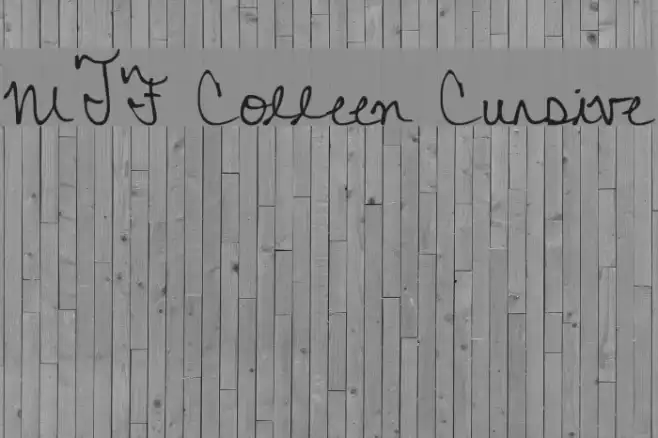 MTF Colleen Cursive